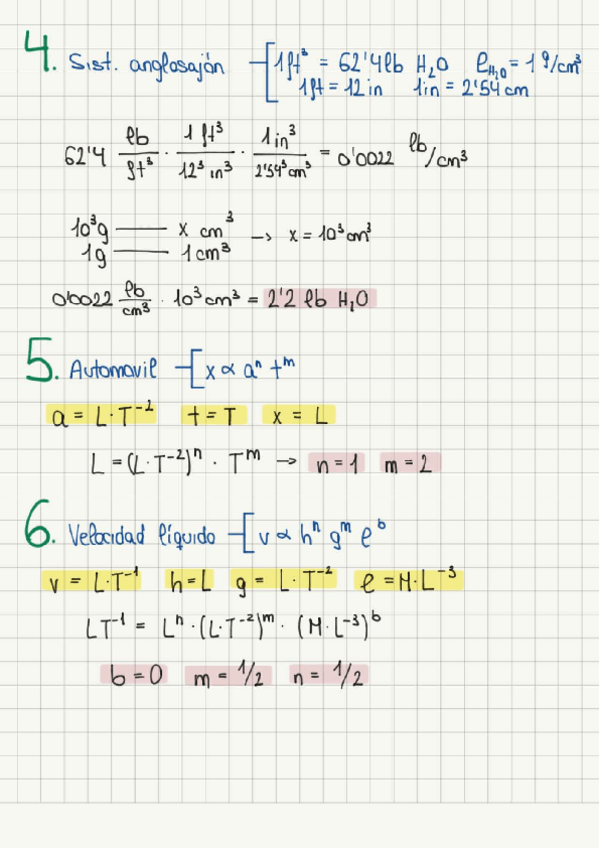 4. Sist. anglosajón 1 ft³ = 62'4 lb H₂O ρH₂O = 1 g/cm³
1 ft = 12 in 1 in = 2'54 cm
62'4 lb/ft³ · 1 ft³/12³ in³ · 1 in³/2'54³ cm³ = 0'0022 lb/cm³
10³g —— x cm³ → x = 10³ cm³
1g —— 1 cm³
0'0022 lb/cm³ · 10³ cm³ = 2'2 lb H₂O
5. Automovil x ∝ aⁿ tᵐ
a = L·T⁻² t = T x = L
L = (L·T⁻²)ⁿ · Tᵐ → n = 1 m = 2
6. Velocidad líquido v ∝ hⁿ gᵐ ρᵇ
v = L·T⁻¹ h = L g = L·T⁻² ρ = M·L⁻³
LT⁻¹ = Lⁿ · (L·T⁻²)ᵐ · (M·L⁻³)ᵇ
b = 0 m = 1/2 n = 1/2